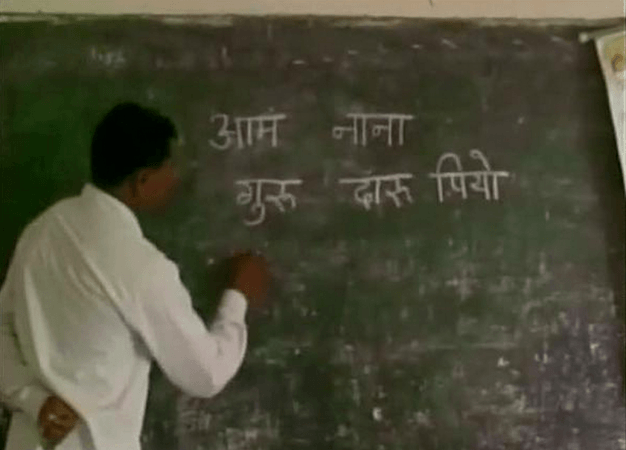 आम नाना
गुरु दारु पियो